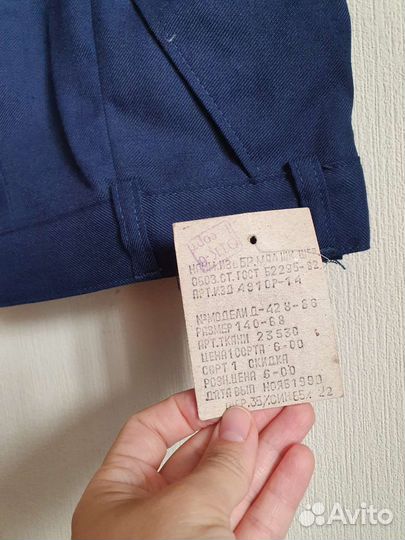 ОБОЗ.ОТ.ГОСТ 52295-82
АРТ.ИЗД 4910Р-14
№МОДЕЛИ Д-428-86
РАЗМЕР 140-68
АРТ.ТКАНИ 23530
ЦЕНА 1 СОРТА 6-00
СОРТ 1 СКИДКА
РОЗН.ЦЕНА 6-00
ДАТА ВЫП НОЯБ1990
Avito